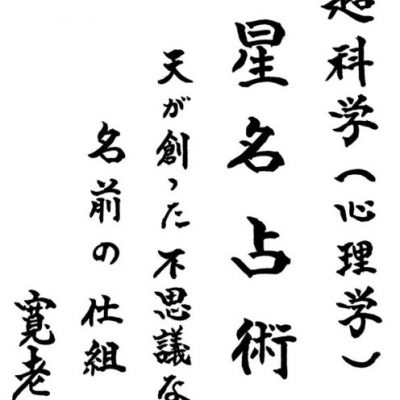 超科学(心理学)
星名占術
天が創った不思議な
名前の仕組
寛老